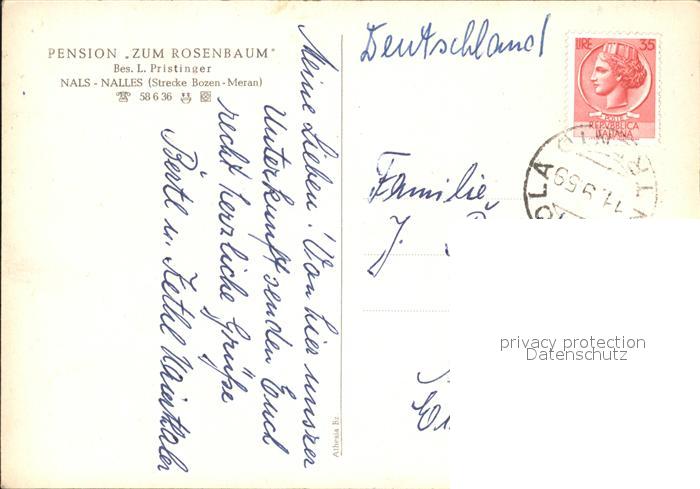 PENSION „ZUM ROSENBAUM"
Bes. L. Pristinger
NALS - NALLES (Strecke Bozen - Meran)
58 6 36
Meine Lieben! Von hier unserer
Unterkunft senden Euch
recht herzliche Grüße
Bertl u.
Athesia Bz
Deutschland
LIRE 35
POSTE
REPUBBLICA
ITALIANA
11.9.59
Familie
J.
privacy protection
Datenschutz